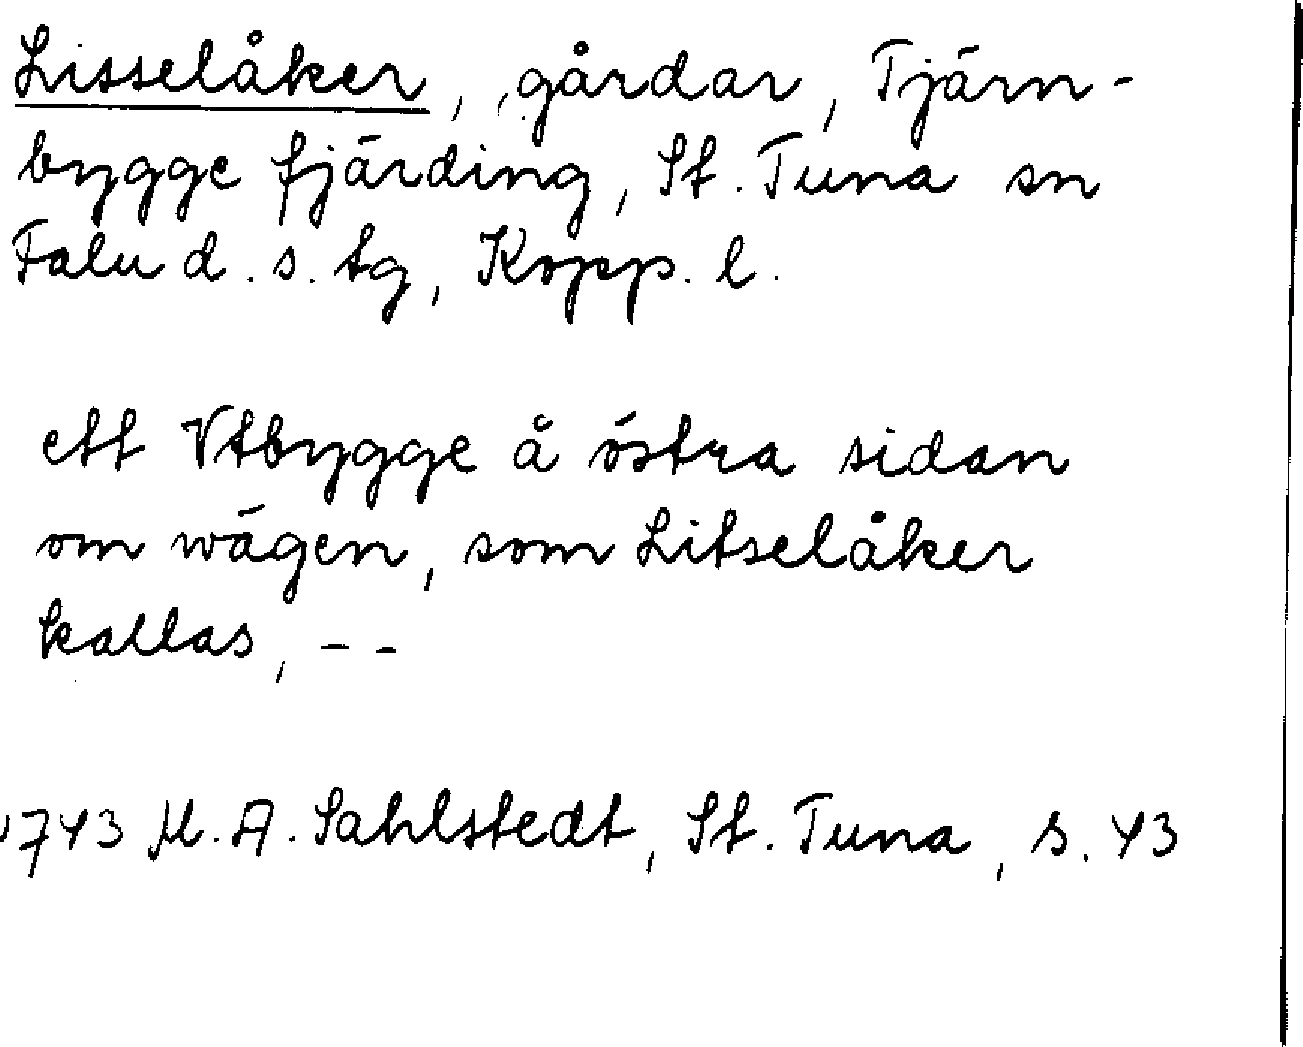 Lisselåker, gårdar, Tjärn-
bygge fjärding, St. Tuna sn
Falu d. s. tg, Kopp. l.
ett Vtbygge å östra sidan
om wägen, som Litselåker
kallas, - -
1743 M. A. Sahlstedt, St. Tuna, s. 43